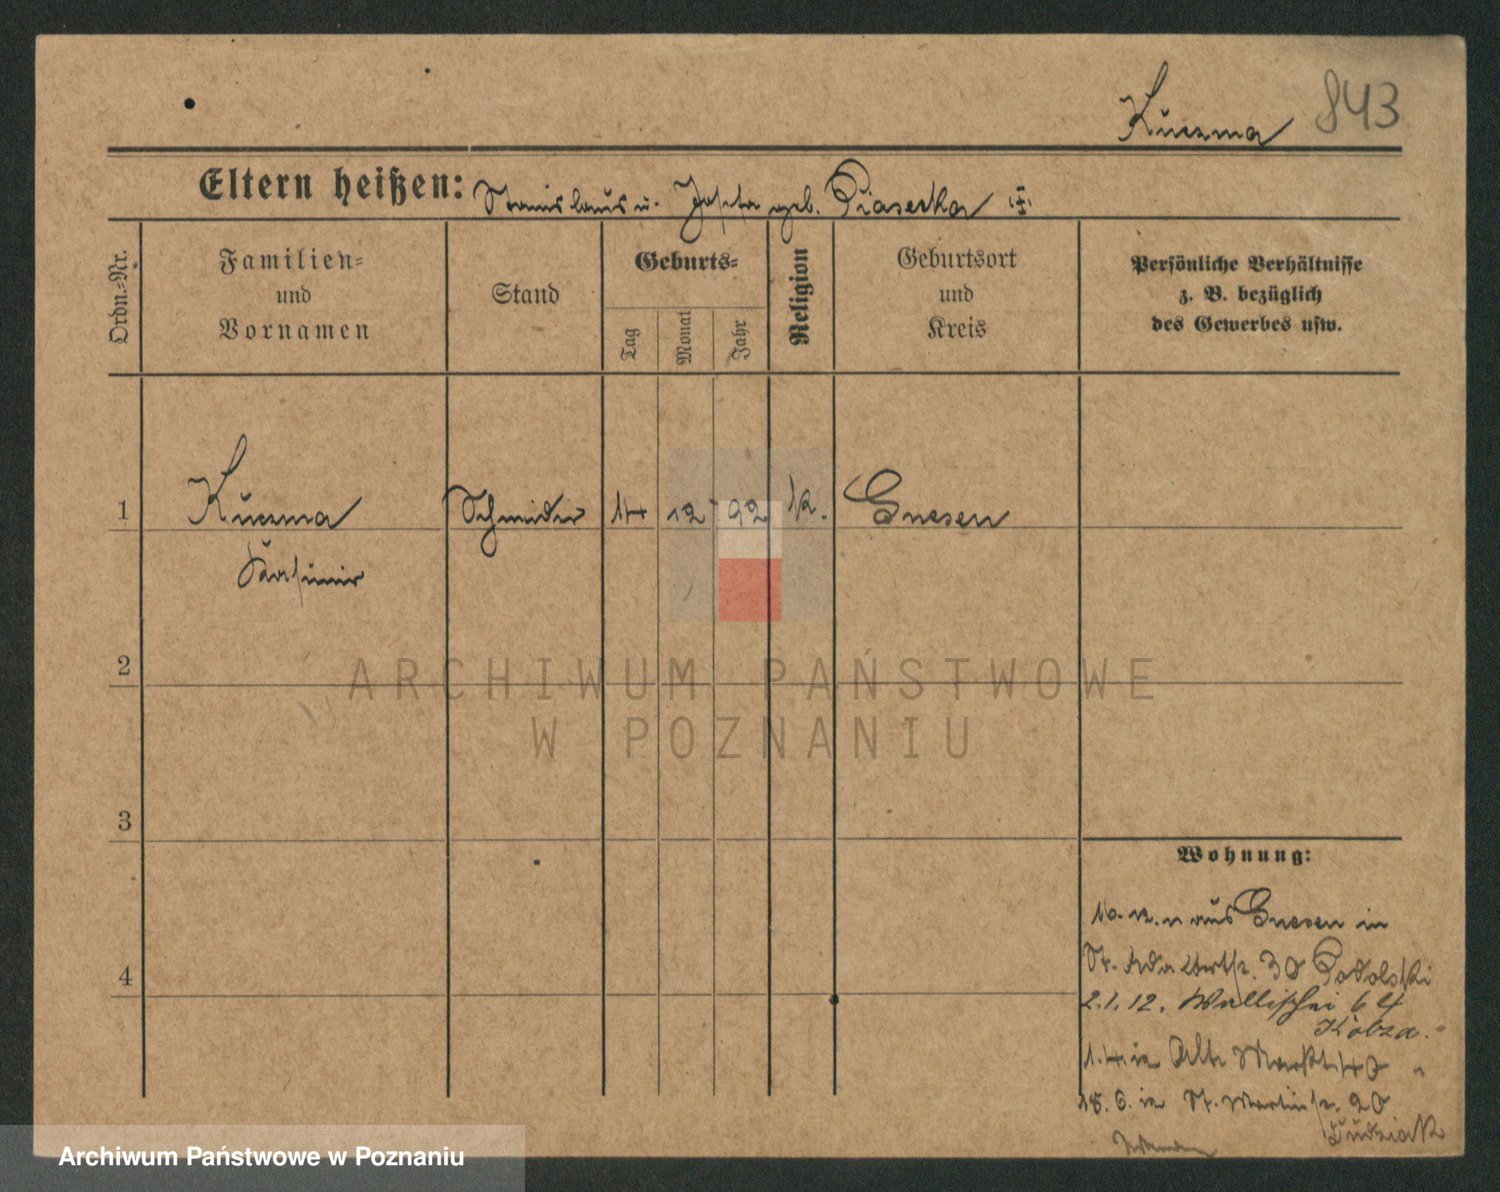 Kuczma 843
Eltern heißen: Stanislaus u. Josefa geb. Piasecka
Ordn.-Nr.
Familien-
und
Vornamen
Stand
Geburts-
Tag
Monat
Jahr
Religion
Geburtsort
und
Kreis
Persönliche Verhältnisse
z. B. bezüglich
des Gewerbes usw.
1 Kuczma Schneider 14 12 92 k. Gnesen
Kasimir
2
3
4
ARCHIWUM PAŃSTWOWE
W POZNANIU
Wohnung:
aus Gnesen in
St. Adalbertstr. 30 Podolski
2.1.12. Wallischei 64
Kobza.
1.4. in Alte Markt 40 "
18.6. in St. Martinstr. 20
Dudziak
Archiwum Państwowe w Poznaniu